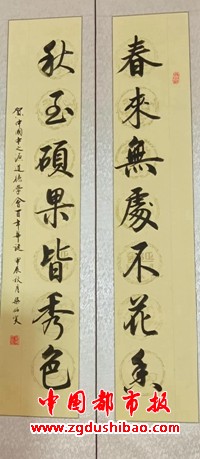 春來無處不花香
秋至碩果皆秀色
賀中國
道德學會百年華誕
甲辰秋月
中国都市报
www.zgdushibao.com